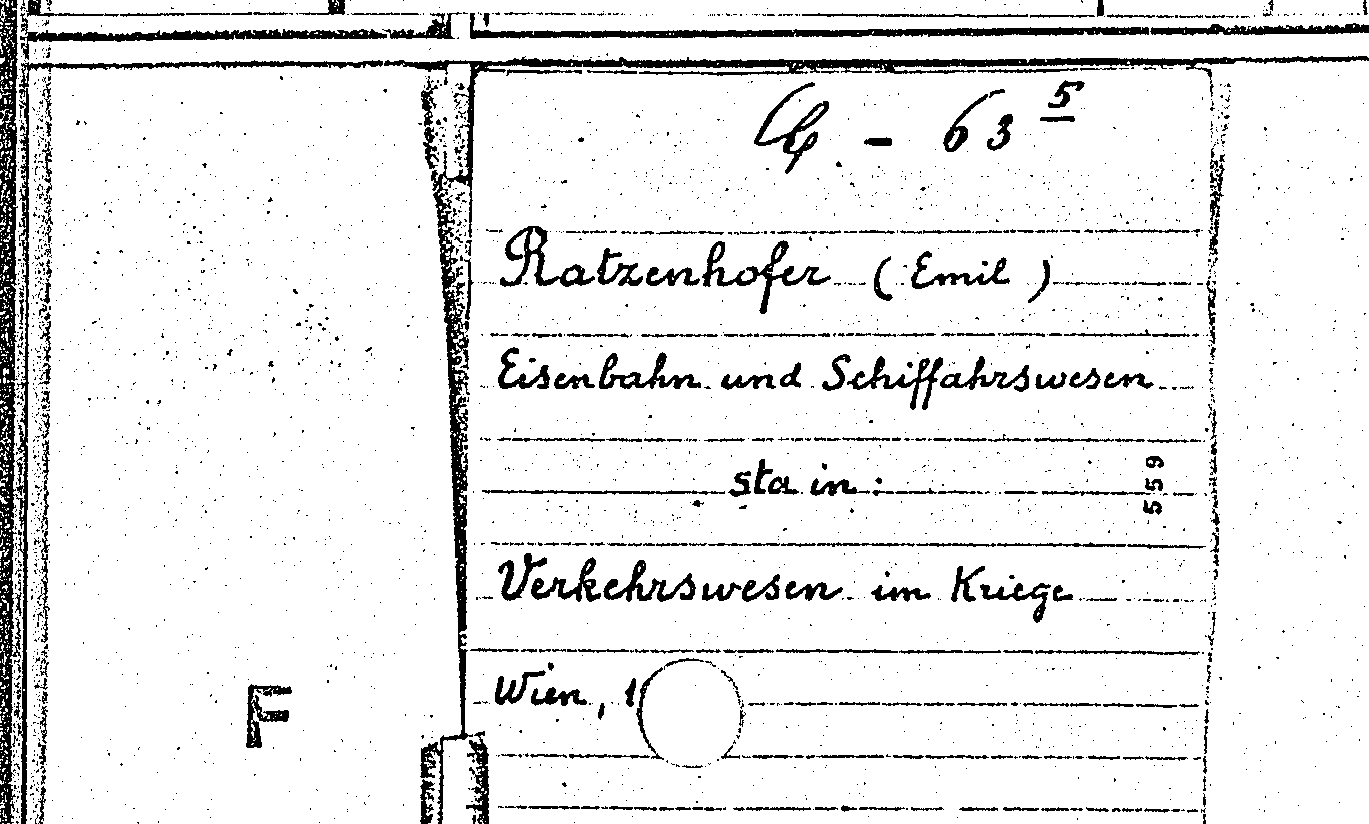 - 63 5
Ratzenhofer ( Emil )
Eisenbahn und Schiffahrswesen
sta in :
559
Verkehrswesen im Kriege
Wien, 1
F